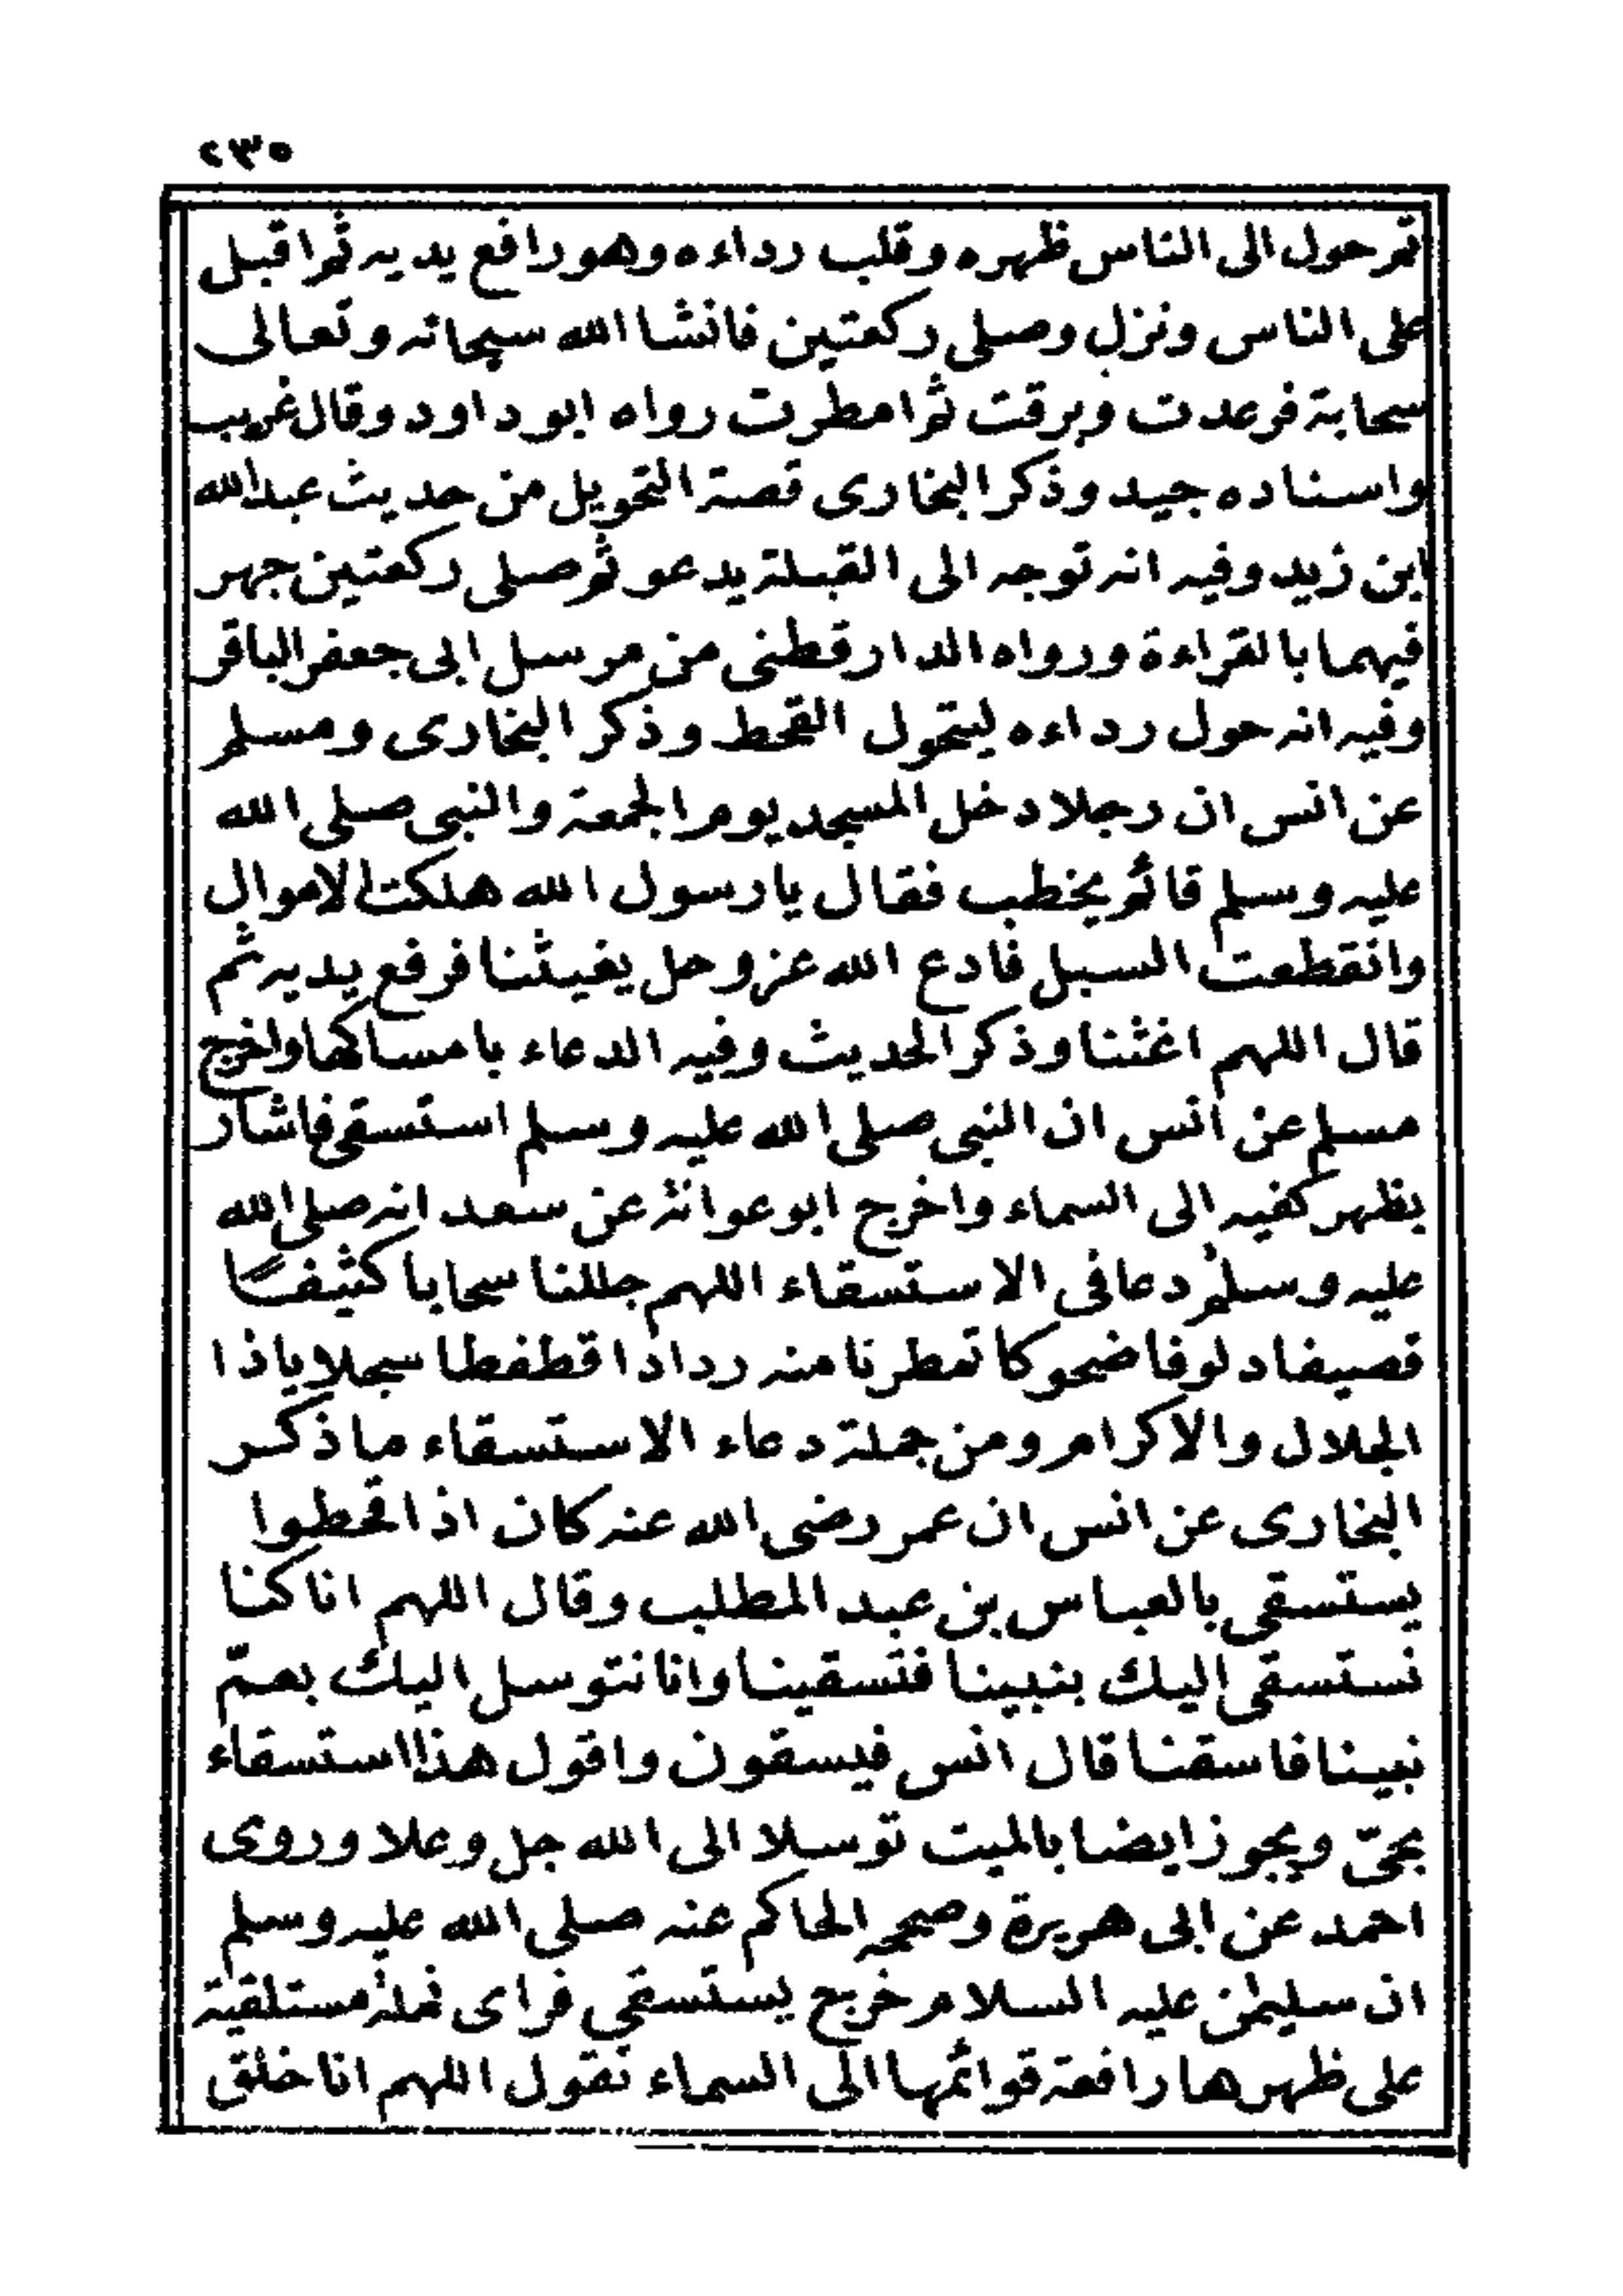 ٢٣٥
ثم حول الى الناس ظهره وقلب رداءه وهو رافع يديه ثم اقبل
على الناس ونزل وصلى ركعتين فانشا الله سبحانه وتعالى
سحابة فرعدت وبرقت ثم امطرت رواه ابو داود وقال غريب
واسناده جيد وذكر البخارى قصة التحويل من حديث عبدالله
ابن زيد وفيه انه توجه الى القبلة يدعو ثم صلى ركعتين جهر
فيهما بالقراءة ورواه الدارقطنى من مرسل ابى جعفر الباقر
وفيه انه حول رداءه ليتحول القحط وذكر البخارى ومسلم
عن انس ان رجلا دخل المسجد يوم الجمعة والنبى صلى الله
عليه وسلم قائم يخطب فقال يا رسول الله هلكت الاموال
وانقطعت السبل فادع الله عز وجل يغيثنا فرفع يديه ثم
قال اللهم اغثنا وذكر الحديث وفيه الدعاء بامساكها واخرج
مسلم عن انس ان النبى صلى الله عليه وسلم استسقى فاشار
بظهر كفيه الى السماء واخرج ابو عوانة عن سعد انه صلى الله
عليه وسلم دعا فى الاستسقاء اللهم جللنا سحابا كثيفًا
قصيفا دلوفا ضحوكا تمطرنا منه رذاذا قطقطا سجلا ياذا
الجلال والاكرام ومن جملة دعاء الاستسقاء ما ذكر
البخارى عن انس ان عمر رضى الله عنه كان اذا قحطوا
يستسقى بالعباس بن عبد المطلب وقال اللهم انا كنا
نستسقى اليك بنبينا فتسقينا وانا نتوسل اليك بعمّ
نبينا فاسقنا قال انس فيسقون واقول هذا استسقاء
بحىّ ويجوز ايضا بالميت توسلا الى الله جل وعلا وروى
احمد عن ابى هريرة وصححه الحاكم عنه صلى الله عليه وسلم
ان سليمن عليه السلام خرج يستسقى فراى نملة مستلقية
على ظهرها رافعة قوائمها الى السماء تقول اللهم انا خلق